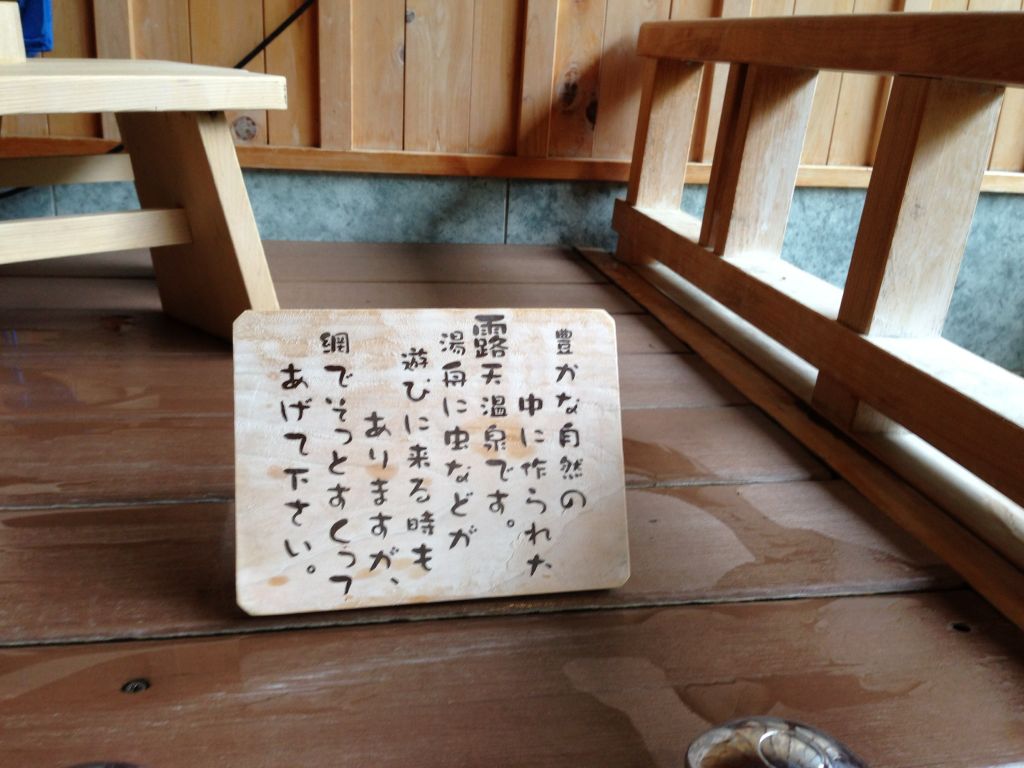 豊かな自然の
中に作られた
露天温泉です。
湯舟に虫などが
遊びに来る時も
ありますが、
網でそっとすくって
あげて下さい。